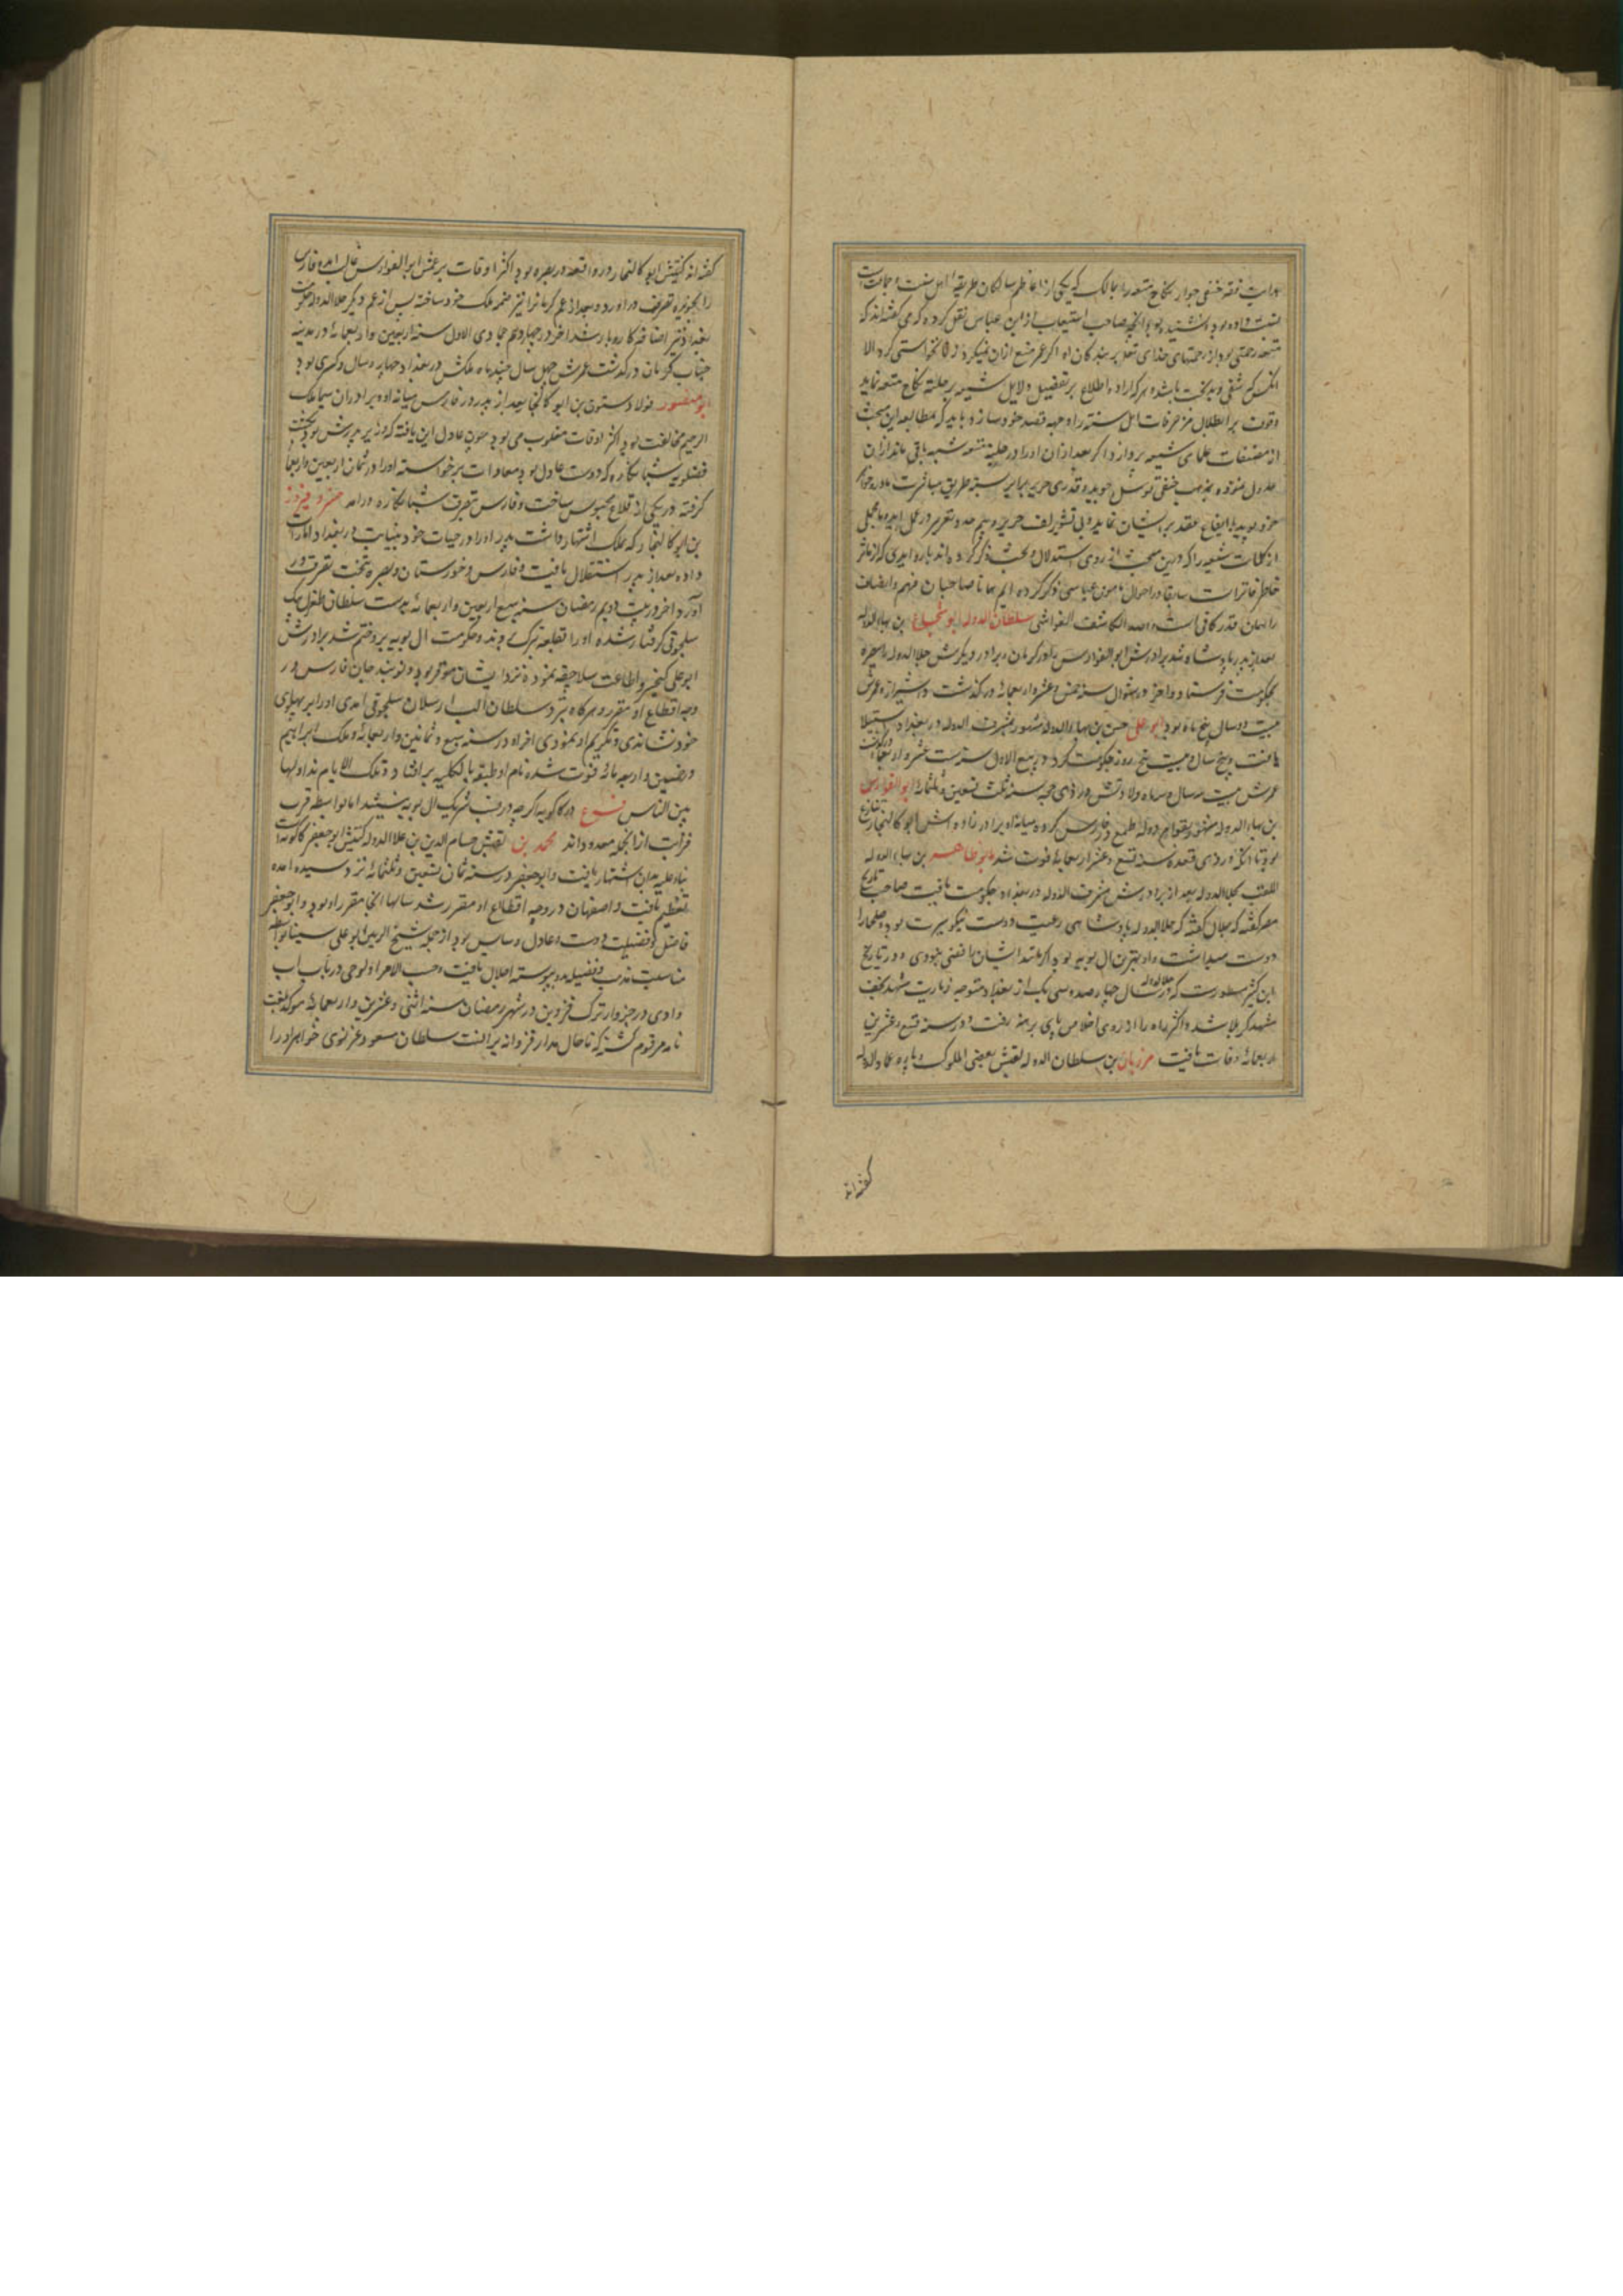 هدایت فقه حنفی جواز نکاح متعه را بمالک که یکی از اعاظم سالکان طریقهٔ اهل سنت و جماعت است
نسبت داده بود شنیده بود و آنچه صاحب استیعاب از ابن عباس نقل کرده که می گفته اند که
متعه رحمتی بود از رحمتهای خدای تعالی بر بندگان او اگر عمر منع ازان نمیکرد زنا نخواستی کرد الا
انکس که شقی و بدبخت باشد و هر که اراده اطلاع بر تفصیل دلایل شیعه بر حلیّة نکاح متعه نماید
وقوف بر ابطال مزخرفات اهل سنة را وجهه قصد خود سازد باید که بمطالعه این مبحث
از مصنفات علمای شیعه پردازد و اگر بعد ازان او را در حلیّة متعه شبهه باقی ماند ازان
عدول نموده بمذهب حنفی توسل جوید و قدری حریر بر ابر بسته طریق مباشرت مادر و خواهر
خود پوید یا ایقاع عقد بر ایشان نماید و بی تشویر لف حریر و بیم حد و تعزیر در عمل اید و مجملی
از کلمات شیعه را که درین مبحث از روی استدلال و بحث ذکر کرده اند پاره ابدی که از مآثر
خاطر فاتر است سابقا در احوال مامون عباسی ذکر کرده ایم همانا صاحبان فهم و انصاف
را همان قدر کافی است والله الکاشف الغواشی سلطان الدوله ابو شجاع بن بهاء الدوله
بعد از پدر پادشاه شد برادرش ابو الفوارس را در کرمان و برادر دیگرش جلال الدوله را ببصره
بحکومت فرستاد و اخر در شوال سنه خمس و عشر و اربعمائه درگذشت در شیراز و عمرش
بیست و دو سال و پنج ماه بود ابو علی حسن بن بهاء الدوله مشهور بمشرف الدوله در بغداد استیلا
یافت و پنج سال و بیست و پنج روز حکومت کرد و در ربیع الاول سنه ست عشر و اربعمائه درگذشت
عمرش بیست و سه سال و سه ماه ولادتش در ذی حجه سنه ثلث و تسعین و ثلثمائه ابو الفوارس
بن بهاء الدوله مشهور بقوام الدوله طمع در فارس کرد و میانه او و برادر زاده اش ابو کالنجار تنازع
بود تا آنکه در ذی قعده سنه تسع و عشر و اربعمائه فوت شد ابو طاهر بن بهاء الدوله
الملقب بجلال الدوله بعد از برادرش مشرف الدوله در بغداد بحکومت یافت صاحب تاریخ
مصر گفته که جلال الدوله پادشاهی رعیت دوست نیکو سیرت بود و علما را
دوست میداشت و او بهترین ال بویه بود اگر مانند ایشان رافضی نبودی و در تاریخ
ابن کثیر مسطور است که جلال الدوله در سال چهار صد و سی یک از بغداد متوجه زیارت مشهد نجف
مشهد کربلا شد و اکثر راه را از روی اخلاص پای برهنه رفت و در سنه تسع و عشرین
و اربعمائه وفات یافت مرزبان بن سلطان الدوله لقبش بعضی الملوک و پاره عماد الدوله
گفته اند
گفته اند کنیتش ابو کالنجار در واقعه در بصره بود اکثر اوقات بر عمش ابو الفوارس غالب امده فارس
را بحوزه تصرف در اورد و بعد از عم کرمان را نیز ضمیمه ملک خود ساخته پس از عم دیگر جلال الدوله حکومت
بغداد نیز اضافه کار و بار شد اخر در چهاردهم جمادی الاول سنه اربعین و اربعمائه در مدینه
جناب کرمان درگذشت عمرش چهل سال و چند ماه ملکش در بغداد چهار سال و کسری بود
ابو منصور فولاد ستون بن ابو کالنجار بعد از پدر در فارس میانه او و برادران سیما ملک
الرحیم مخالفت بود اکثر اوقات مغلوب می بود چون عادل این یافته که وزیر پدرش بود بکشت
فضلویه شبانکاره که دوست عادل بود بمعادات برخواسته او را در ثمان و اربعین و اربعمائه
گرفته در یکی از قلاع محبوس ساخت و فارس بتصرف شبانکاره درامد خسرو فیروز
بن ابو کالنجار که بملک اشتهار داشت پدر او را در حیات خود به نیابت در بغداد امارت
داده بعد از پدر استقلال یافت و فارس و خوزستان و بصره بتحت تصرف در
آورد اخر در بیست و دویم رمضان سنه سبع و اربعین و اربعمائه بدست سلطان طغرل بیک
سلجوقی گرفتار شده او را بقلعه تبرک بردند و حکومت ال بویه برو ختم شد برادرش
ابو علی کیخسرو اطاعت سلاجقه نموده نزد ایشان موقر بود و نوبندجان فارس در
وجه اقطاع او مقرر و هرگاه نزد سلطان الب ارسلان سلجوقی آمدی او را بر پهلوی
خود نشاندی و تکریم او نمودی اخر او در سنه سبع و ثمانین و اربعمائه و ملک ابراهیم
در خمسین و اربعمائه فوت شده نام او طبقه بالکلیه برافتاد و تلک الایام نداولها
بین الناس فرع در کاکویه اگر چه در نسب شریک ال بویه نیستند اما بواسطه قرب
قرابت از انجمله معدوداند محمد بن لقبش حسام الدین بن علاء الدوله کنیتش ابو جعفر کاکویه است
بنابرین بدان اشتهار یافت و ابو جعفر در سنه ثمان و تسعین و ثلثمائه نزد سیده امده
تعظیم یافت و اصفهان در وجه اقطاع او مقرر شد سالها انجا مقر او بود و ابو جعفر
فاضل و فضیلت دوست و عادل و سایس بود از جمله شیخ الرئیس ابو علی سینا بواسطه
مناسبت مذهب و فضیله بدو پیوسته اجلال یافت و حسب الامر او لوحی در باب اب
وادی در جزو ارترک قزوین در شهر رمضان سنه اثنی و عشرین و اربعمائه موکد بلعنت
نامه مرقوم گشته که تا حال مدار قزوانه بر انست سلطان مسعود غزنوی خواهر او را